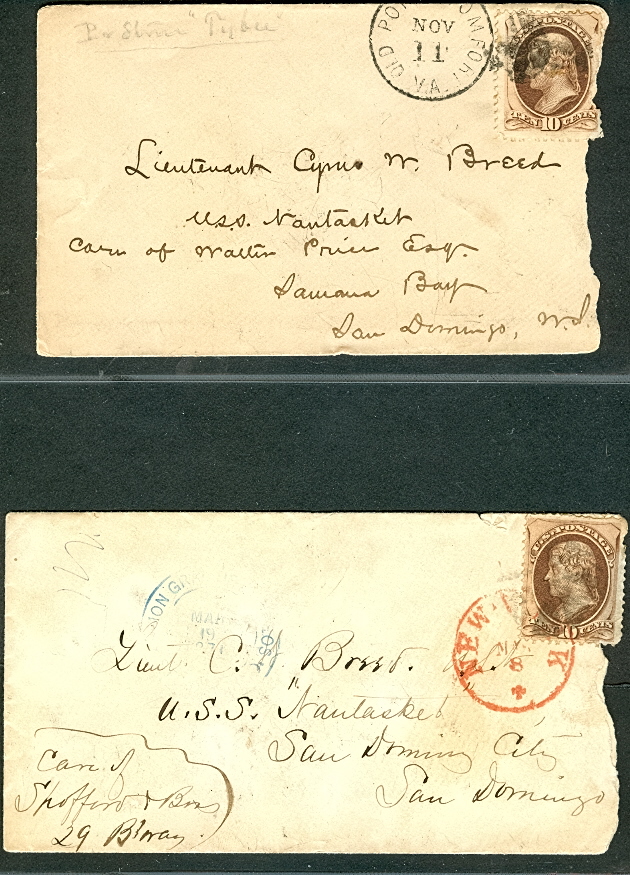 Per Str "Tybee"
OLD POINT COMFORT
NOV
11
VA.
U.S. POSTAGE
TEN 10 CENTS
Lieutenant Cyrus W. Breed
U.S.S. Nantasket
Care of Walter Price Esq.
Samana Bay
San Domingo, W.I.
U.S. POSTAGE
TEN 10 CENTS
NON
MAR
19
NEW YORK
8
Lieut. C. Breed.
U.S.S. Nantasket
San Doming City
San Domingo
Care of
Spofford & Bros
29 B'way.